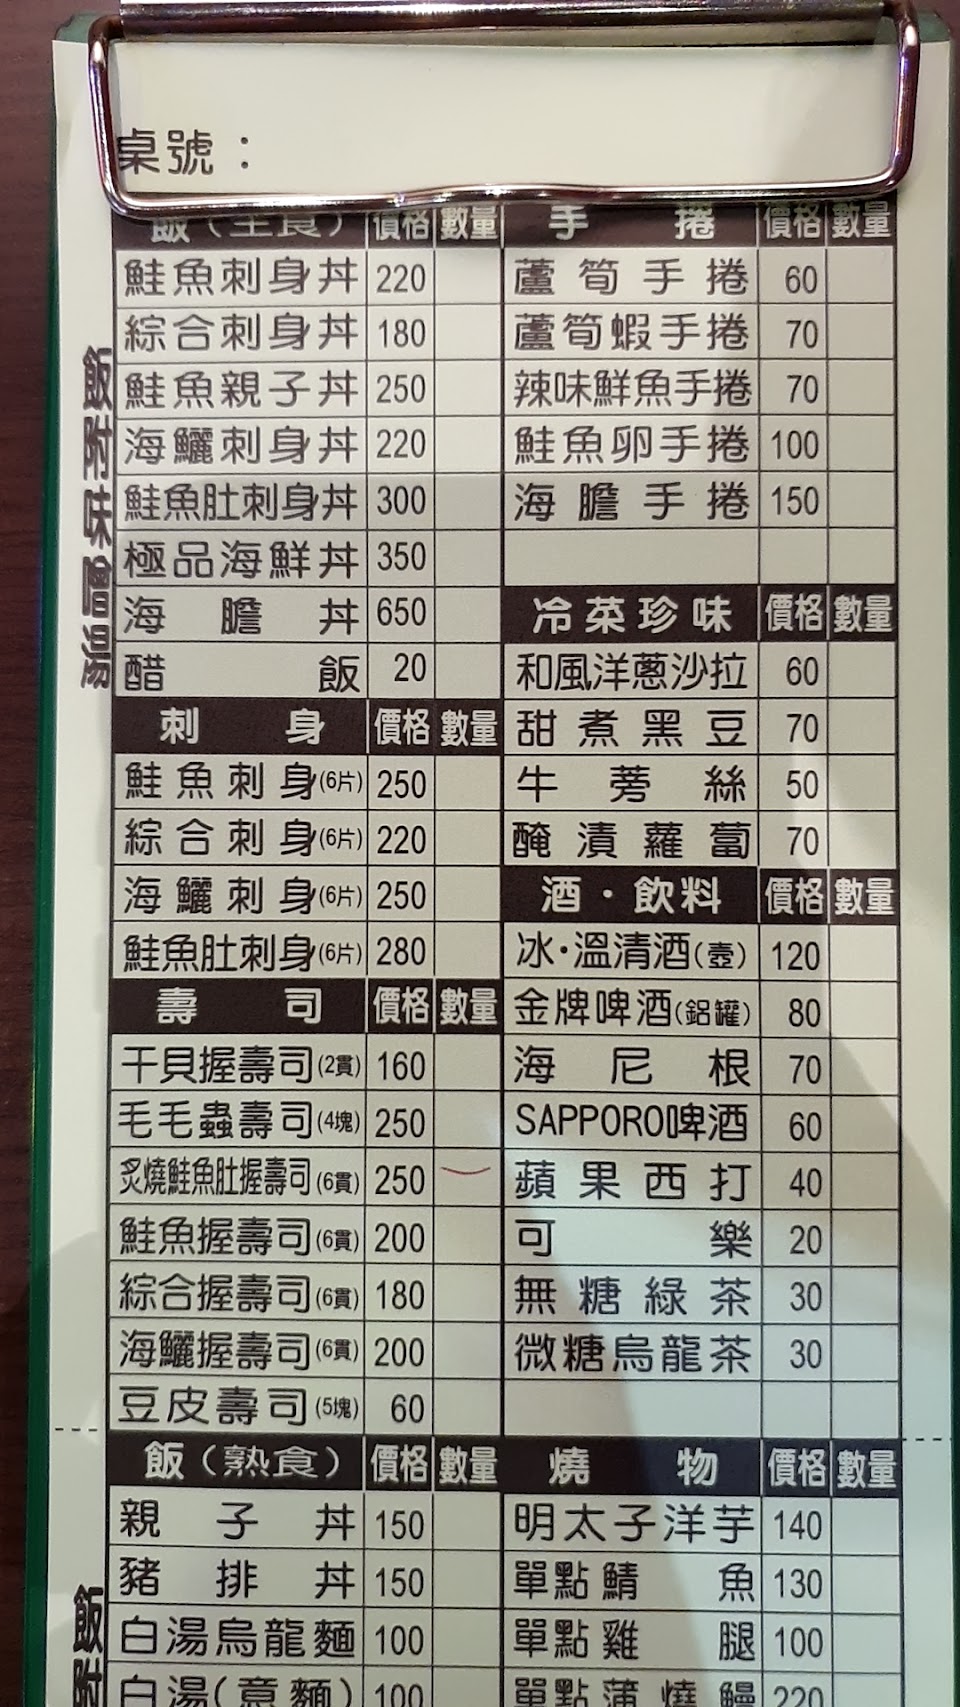 桌號：
飯（主食） 價格 數量
鮭魚刺身丼 220
綜合刺身丼 180
鮭魚親子丼 250
海鱺刺身丼 220
鮭魚肚刺身丼 300
極品海鮮丼 350
海膽丼 650
醋飯 20
飯附味噌湯
刺身 價格 數量
鮭魚刺身(6片) 250
綜合刺身(6片) 220
海鱺刺身(6片) 250
鮭魚肚刺身(6片) 280
壽司 價格 數量
干貝握壽司(2貫) 160
毛毛蟲壽司(4塊) 250
炙燒鮭魚肚握壽司(6貫) 250
鮭魚握壽司(6貫) 200
綜合握壽司(6貫) 180
海鱺握壽司(6貫) 200
豆皮壽司(5塊) 60
手捲 價格 數量
蘆筍手捲 60
蘆筍蝦手捲 70
辣味鮮魚手捲 70
鮭魚卵手捲 100
海膽手捲 150
冷菜珍味 價格 數量
和風洋蔥沙拉 60
甜煮黑豆 70
牛蒡絲 50
醃漬蘿蔔 70
酒・飲料 價格 數量
冰・溫清酒(壺) 120
金牌啤酒(鋁罐) 80
海尼根 70
SAPPORO啤酒 60
蘋果西打 40
可樂 20
無糖綠茶 30
微糖烏龍茶 30
飯（熟食） 價格 數量
親子丼 150
豬排丼 150
白湯烏龍麵 100
白湯(意麵) 100
飯附
燒物 價格 數量
明太子洋芋 140
單點鯖魚 130
單點雞腿 100
單點蒲燒鰻 220